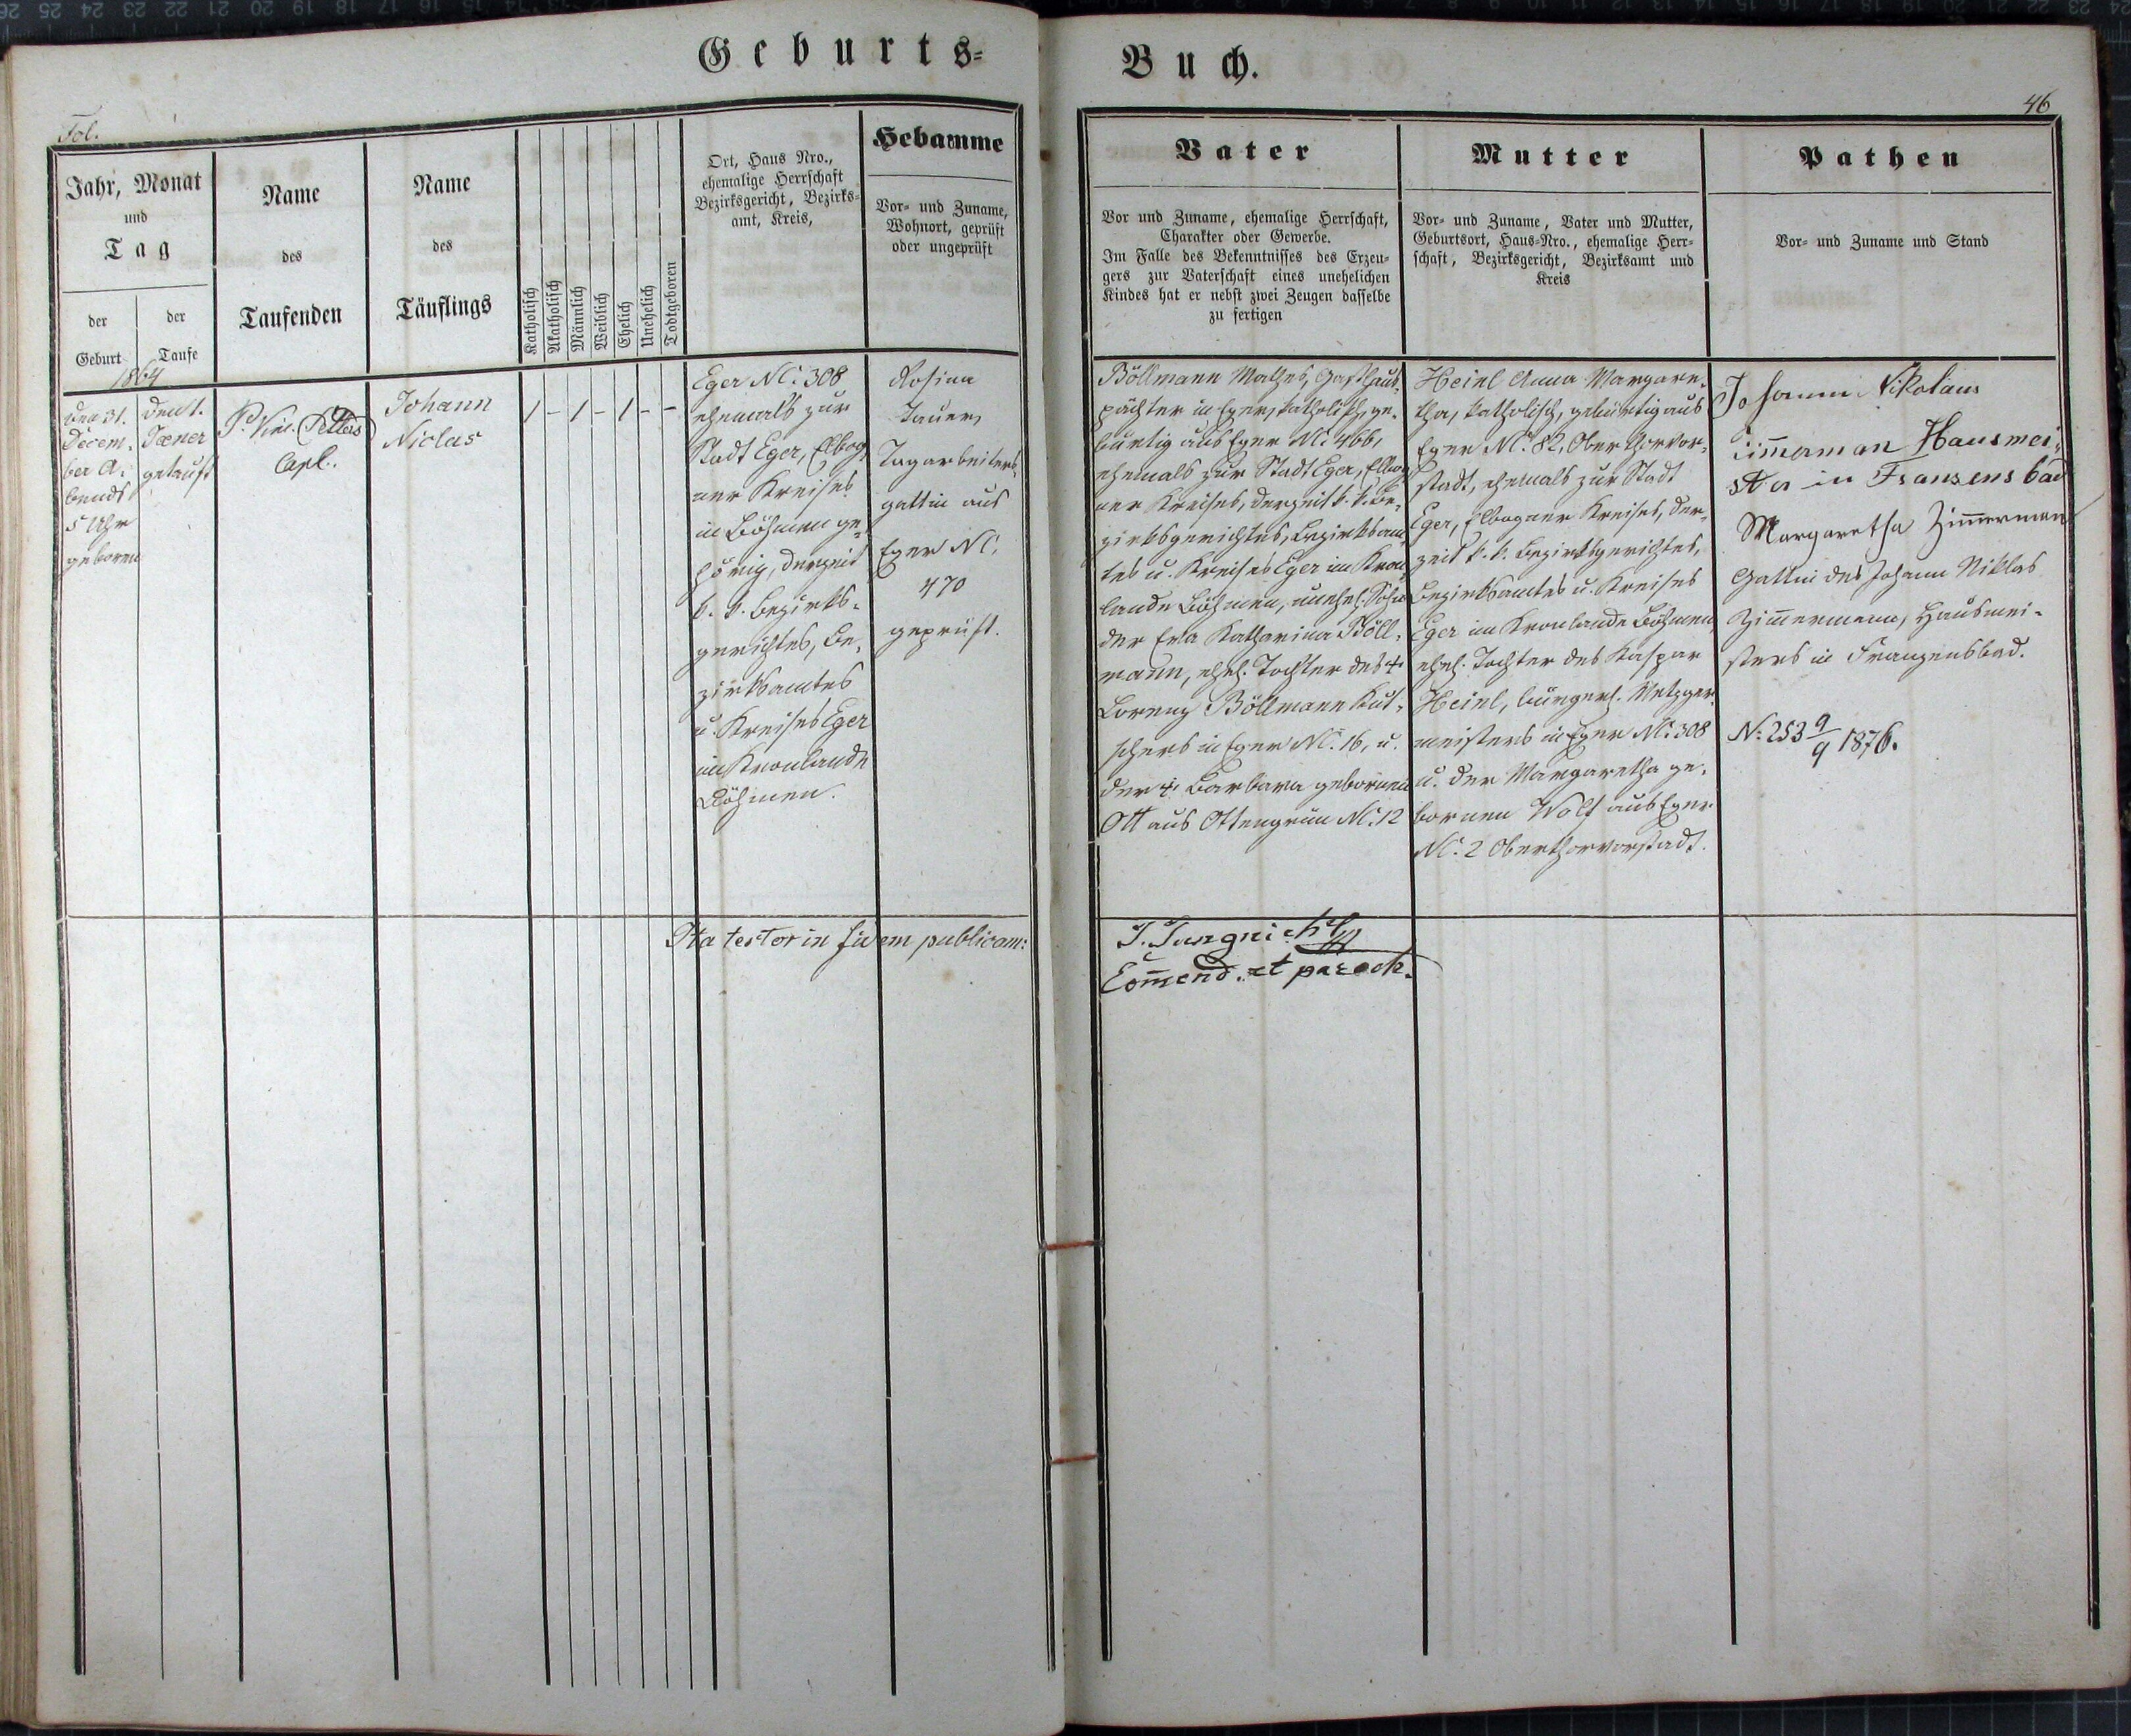 Geburts-
Buch.
Fol.
46
Jahr, Monat
und
Tag
der
Geburt
der
Taufe
Name
des
Taufenden
Name
des
Täuflings
Katholisch
Akatholisch
Männlich
Weiblich
Ehelich
Unehelich
Todtgeboren
Ort, Haus Nro.,
ehemalige Herrschaft
Bezirksgericht, Bezirks-
amt, Kreis,
Hebamme
Vor- und Zuname,
Wohnort, geprüft
oder ungeprüft
Vater
Vor und Zuname, ehemalige Herrschaft,
Charakter oder Gewerbe.
Im Falle des Bekenntnisses des Erzeu-
gers zur Vaterschaft eines unehelichen
Kindes hat er nebst zwei Zeugen dasselbe
zu fertigen
Mutter
Vor- und Zuname, Vater und Mutter,
Geburtsort, Haus-Nro., ehemalige Herr-
schaft, Bezirksgericht, Bezirksamt und
Kreis
Pathen
Vor- und Zuname und Stand
1864
den 31.
Decem-
ber A-
bends
5 Uhr
geboren
den 1.
Jæner
getauft
P. Vinc. Petters
Capl.
Johann
Niclas
1 - 1 - 1 - -
Eger Nº. 308
ehemals zur
Stadt Eger, Elbog-
ner Kreises
in Böhmen ge-
hörig, derzeit
k. k. Bezirks-
gerichtes, Be-
zirksamtes
u. Kreises Eger
im Kronlande
Böhmen.
Rosina
Sauer,
Tagarbeiters-
gattin aus
Eger Nº.
470
geprüft.
Böllmann Mathes, Gasthaus-
pächter in Eger, katholisch, ge-
bürtig aus Eger Nº. 466,
ehemals zur Stadt Eger, Elbog-
ner Kreises, derzeit k. k. Be-
zirksgerichtes, Bezirksam-
tes u. Kreises Eger im Kron-
lande Böhmen, unehel. Sohn
der Eva Katharina Böll-
mann, ehel. Tochter des †
Lorenz Böllmann Kut-
schers in Eger Nº. 16, u.
der † Barbara gebornen
Ott aus Ottengrün Nº. 12
Heinl Anna Margare-
tha, katholisch, gebürtig aus
Eger Nº. 82, Oberthorvor-
stadt, ehemals zur Stadt
Eger, Elbogner Kreises, der-
zeit k. k. Bezirksgerichtes,
Bezirksamtes u. Kreises
Eger im Kronlande Böhmen,
ehel. Tochter des Kaspar
Heinl, bürgerl. Metzger-
meisters in Eger Nº. 308
u. der Margaretha ge-
bornen Wolf aus Eger
Nº. 2 Oberthorvorstadt.
Johann Nikolaus
Zim̅erman Hausmei-
ster in Fransensbad
Margaretha Zim̅erman
Gattin des Johann Niklas
Zim̅ermann, Hausmei-
sters in Franzensbad.
N: 253 9/9 1876.
Ita testor in fidem publicam:
J. Jungnickl
Com̅end. et paroch.